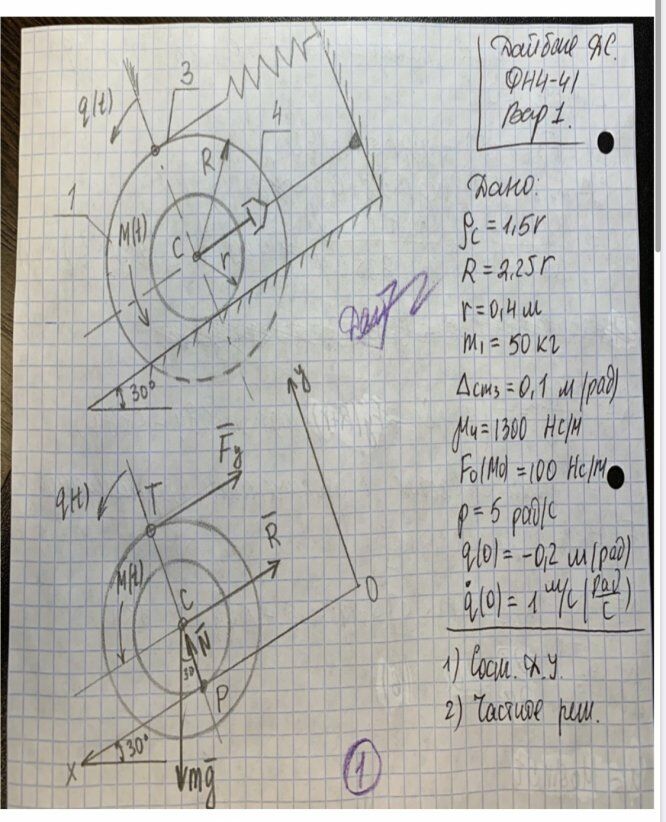 q(t)
3
4
R
1
M(t)
C
r
30°
ФН4-41
Вар 1.
Дано:
ρc = 1,5r
R = 2,25r
r = 0,4 м
m₁ = 50 кг
Δст₃ = 0,1 м (рад)
μ₄ = 1300 Нс/м
F₀(M₀) = 100 Нс/м
p = 5 рад/с
q(0) = -0,2 м (рад)
q̇(0) = 1 м/с (рад/с)
1) Сост. Д.У.
2) Частное реш.
y
F̅y
q(t)
T
R̅
M(t)
C
N̅
30
O
P
30°
X
mg̅
1